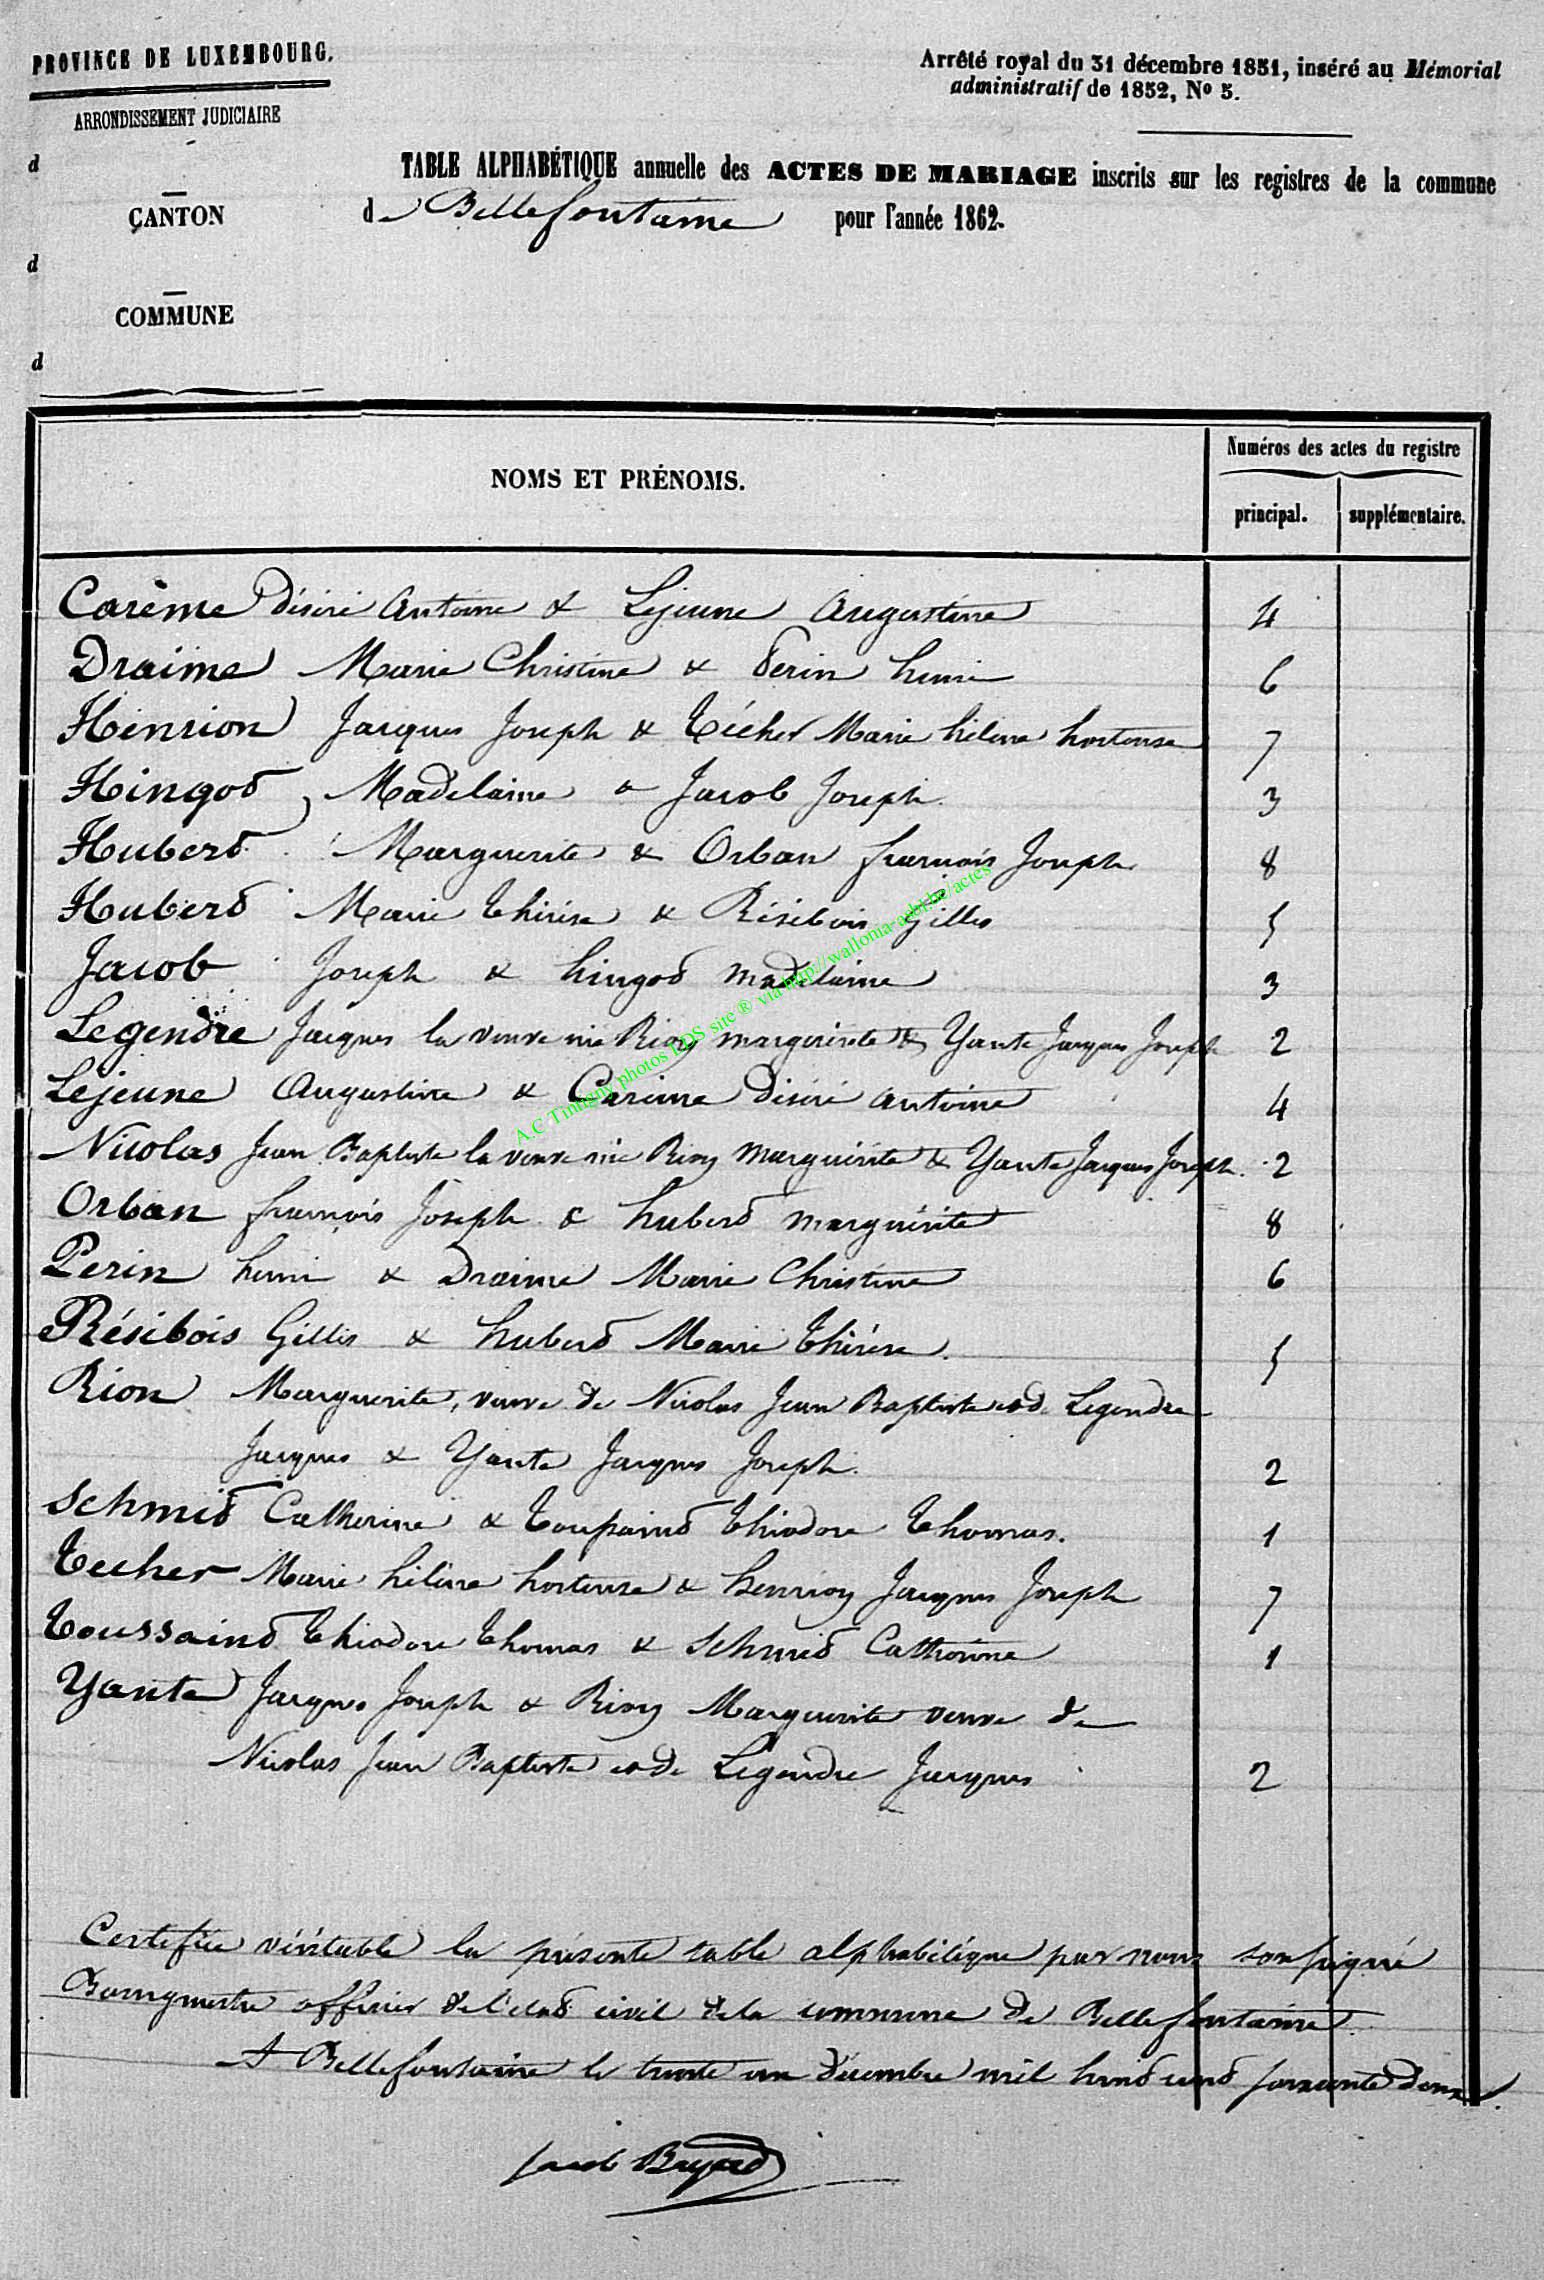 PROVINCE DE LUXEMBOURG.
ARRONDISSEMENT JUDICIAIRE
d
CANTON
d
COMMUNE
d
Arrêté royal du 31 décembre 1851, inséré au Mémorial
administratif de 1852, No 5.
TABLE ALPHABÉTIQUE annuelle des ACTES DE MARIAGE inscrits sur les registres de la commune
de Bellefontaine pour l'année 1862.
NOMS ET PRÉNOMS.
Numéros des actes du registre
principal. supplémentaire.
Carème Désiré Antoine & Lejeune Augustine 4
Draime Marie Christine & Perin henri 6
Henrion Jacques Joseph & Técher Marie hélène hortense 7
Hingod, Madelaine & Jacob Joseph. 3
Huberd Marguerite & Orban françois Joseph 8
Huberd Marie thérèse & Résibois Gilles 5
Jacob Joseph & hingod madelaine 3
Legendre Jacques la veuve née Rion marguerite & Yante Jacques Joseph 2
Lejeune Augustine & Carème Désiré antoine 4
Nicolas Jean Baptiste la veuve née Rion marguerite & Yante Jacques Joseph. 2
Orban françois Joseph & huberd marguérite 8
Perin henri & Draime Marie Christine 6
Résibois Gilles & huberd Marie thérèse. 5
Rion Marguerite, veuve de Nicolas Jean Baptiste & de Legendre
Jacques & Yante Jacques Joseph. 2
Schmid Catherine & toussaind théodore thomas. 1
Techer Marie hélène hortense & henrion Jacques Joseph 7
Toussaind théodore thomas & Schmid Catherine 1
Yante Jacques Joseph & Rion Marguerite veuve de
Nicolas Jean Baptiste & de Legendre Jacques 2
Certifiée véritable la présente table alphabétique par nous soussigné
Bourgmestre officier de l'etad civil de la commune de Bellefontaine.
A Bellefontaine le trente un décembre mil huid cend soixante deux.
A.C Tintigny photos EDS site ® via http://wallonia-asbl.be/actes